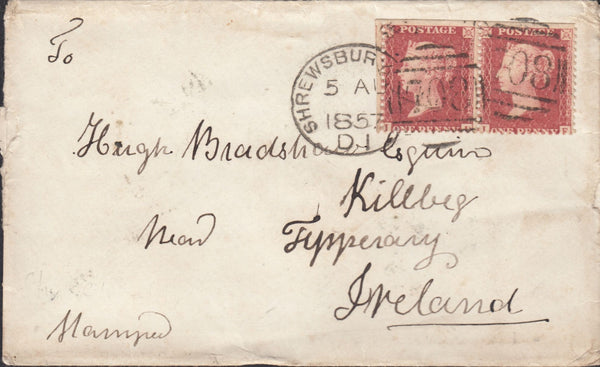 To
POSTAGE POSTAGE
SHREWSBURY
5 AU
1857
D1
708 708
ONE PENNY
Hugh Bradshaw Esquire
Killbeg
Near Tipperary
Ireland
Stamped